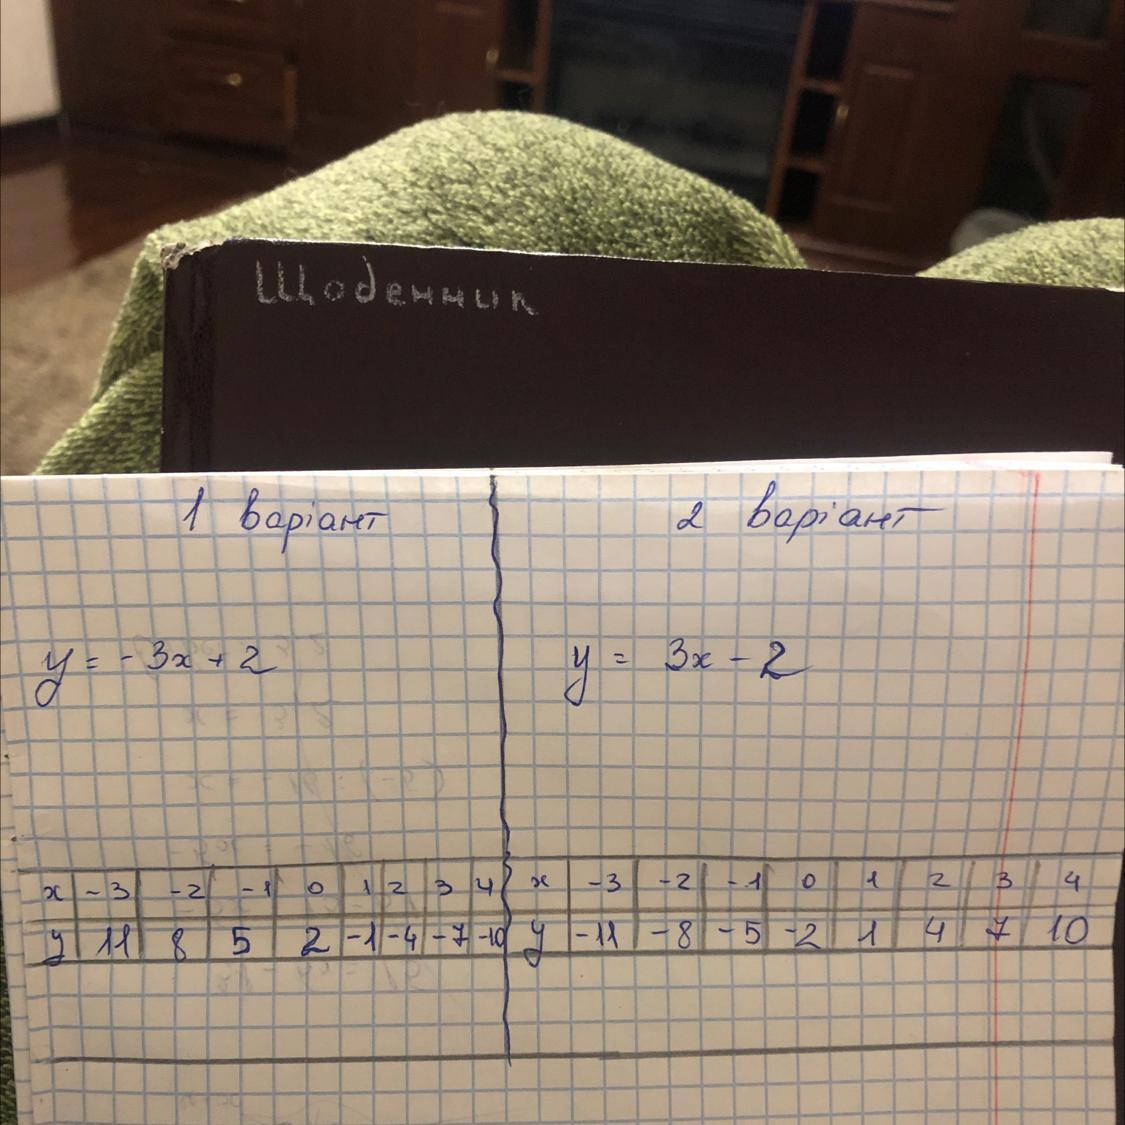 Щоденник
1 варіант
y = -3x + 2
x -3 -2 -1 0 1 2 3 4
y 11 8 5 2 -1 -4 -7 -10
2 варіант
y = 3x - 2
x -3 -2 -1 0 1 2 3 4
y -11 -8 -5 -2 1 4 7 10